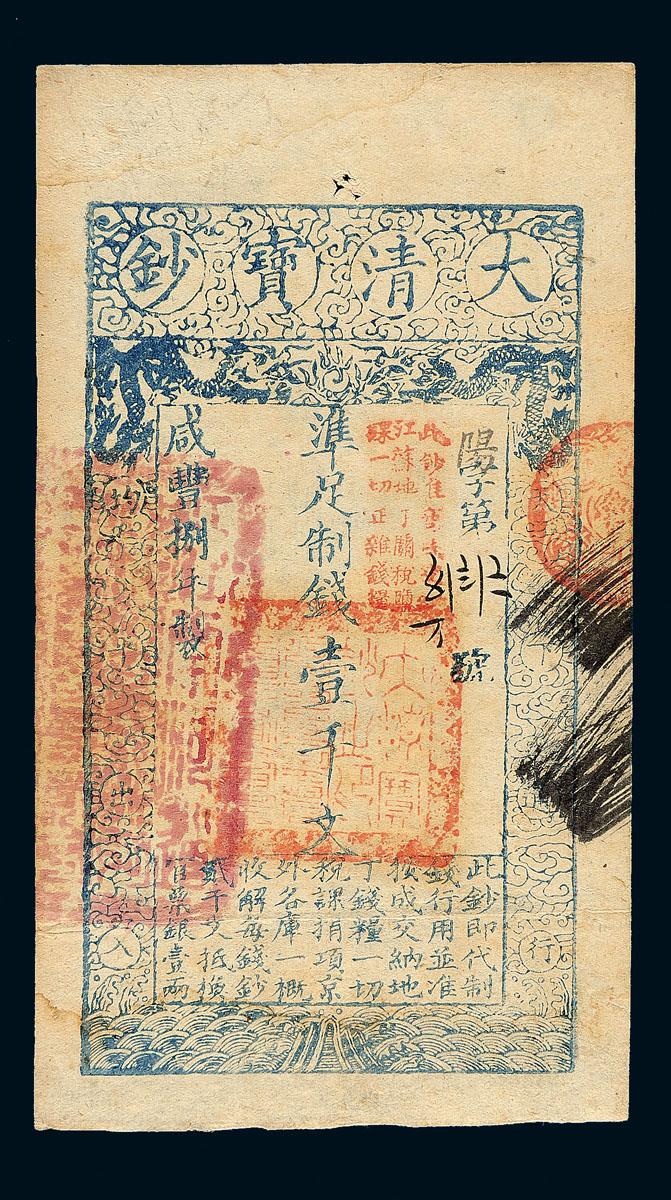 大清寶鈔
天下通行
陽字第
號
此鈔准
江蘇地丁關稅鹽
課一切正雜錢糧
準足制錢壹千文
咸豐捌年製
均平出入
此鈔即代制
錢行用並准
按成交納地
丁錢糧一切
稅課捐項京
外各庫一概
收解每錢鈔
貳千文抵換
官票銀壹兩